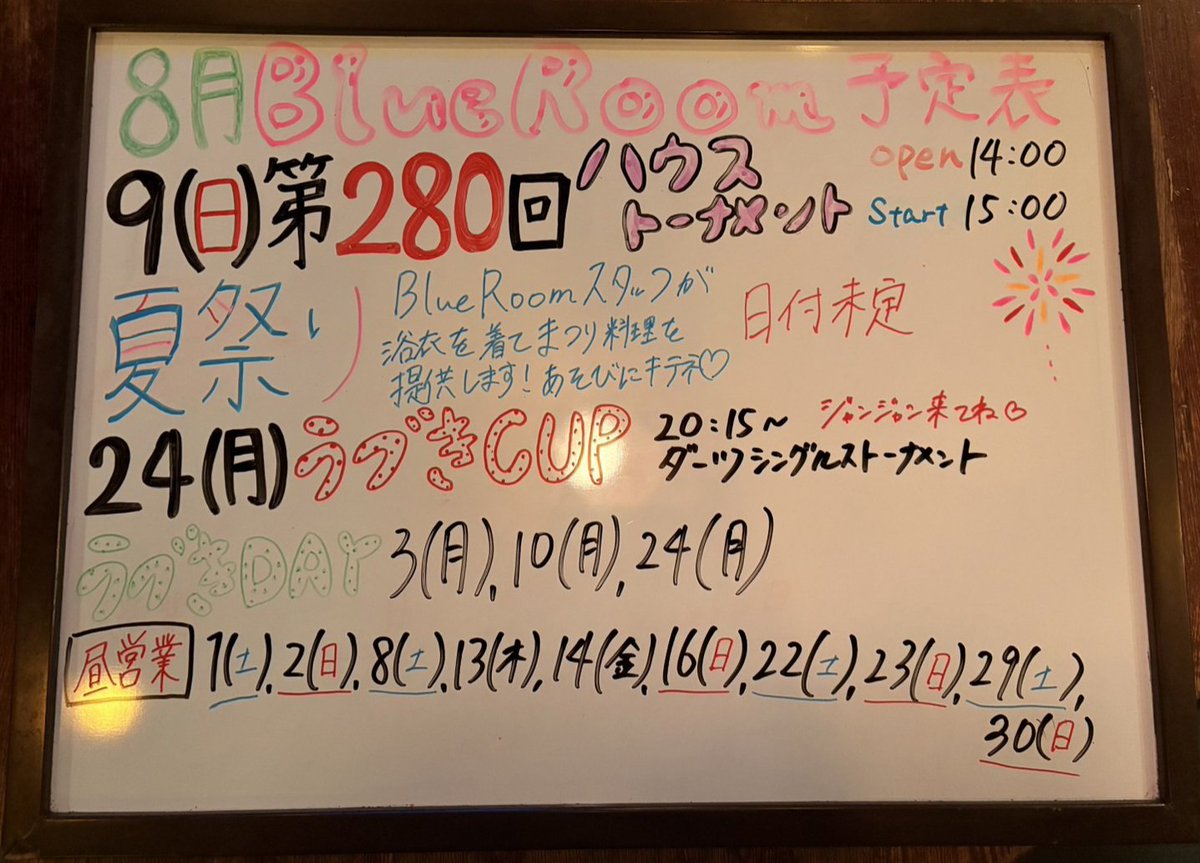 8月BlueRoom予定表
9(日)第280回ハウストーナメント open 14:00
Start 15:00
夏祭り BlueRoomスタッフが
浴衣を着てまつり料理を
提供します!あそびにキテネ♡
日付未定
24(月)うづきCUP 20:15~ ジャンジャン来てね♡
ダーツシングルストーナメント
うづきDAY 3(月),10(月),24(月)
昼営業 1(土),2(日),8(土),13(木),14(金),16(日),22(土),23(日),29(土),
30(日)